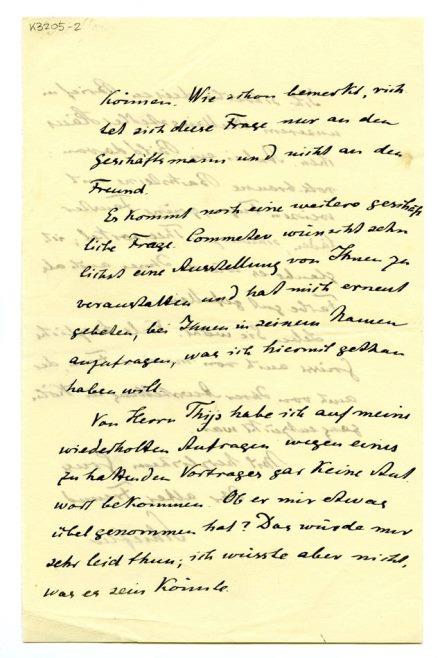 K3205-2
können. Wie schon bemerkt, rich
tet sich diese Frage nur an den
Geschäftsmann und nicht an den
Freund.
Es kommt noch eine weitere geschäft
liche Frage. Commeter wünscht sehn
lichst eine Ausstellung von Ihnen zu
veranstalten und hat mich erneut
gebeten, bei Ihnen in seinem Namen
anzufragen, was ich hiermit gethan
haben will.
Von Herrn Thijs habe ich auf meine
wiederholten Anfragen wegen eines
zu haltenden Vortrages gar keine Ant
wort bekommen. Ob er mir etwas
übel genommen hat? Das würde mir
sehr leid thun; ich wüsste aber nicht,
was es sein könnte.